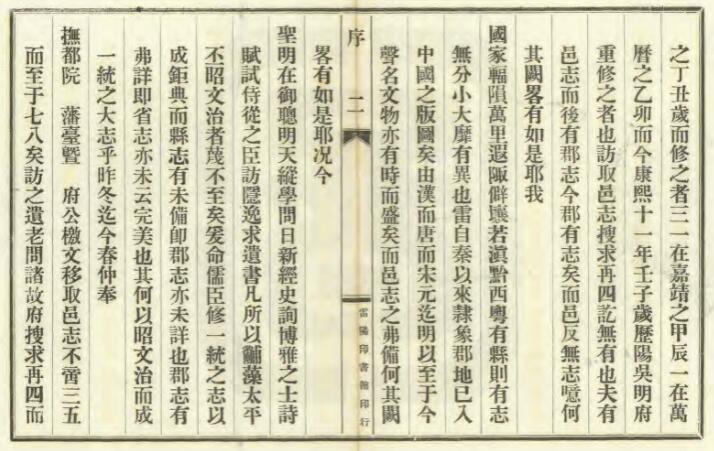 之丁丑歲而修之者三一在嘉靖之甲辰一在萬
曆之乙卯而今康熙十一年壬子歲歷陽吳明府
重修之者也訪取邑志搜求再四訖無有也夫有
邑志而後有郡志今郡有志矣而邑反無志噫何
其闕畧有如是耶我
國家輻隕萬里遐陬僻壤若滇黔西粵有縣則有志
無分小大靡有異也雷自秦以來隸象郡地已入
中國之版圖矣由漢而唐而宋元迄明以至于今
聲名文物亦有時而盛矣而邑志之弗備何其闕
序
二
雷陽印書館印行
畧有如是耶况今
聖明在御聰明天縱學問日新經史詢博雅之士詩
賦試侍從之臣訪隱逸求遺書凡所以黼藻太平
丕昭文治者蔑不至矣爰命儒臣修一統之志以
成鉅典而縣志有未備卽郡志亦未詳也郡志有
弗詳即省志亦未云完美也其何以昭文治而成
一統之大志乎昨冬迄今春仲奉
撫都院 藩臺暨 府公檄文移取邑志不啻三五
而至于七八矣訪之遺老問諸故府搜求再四而